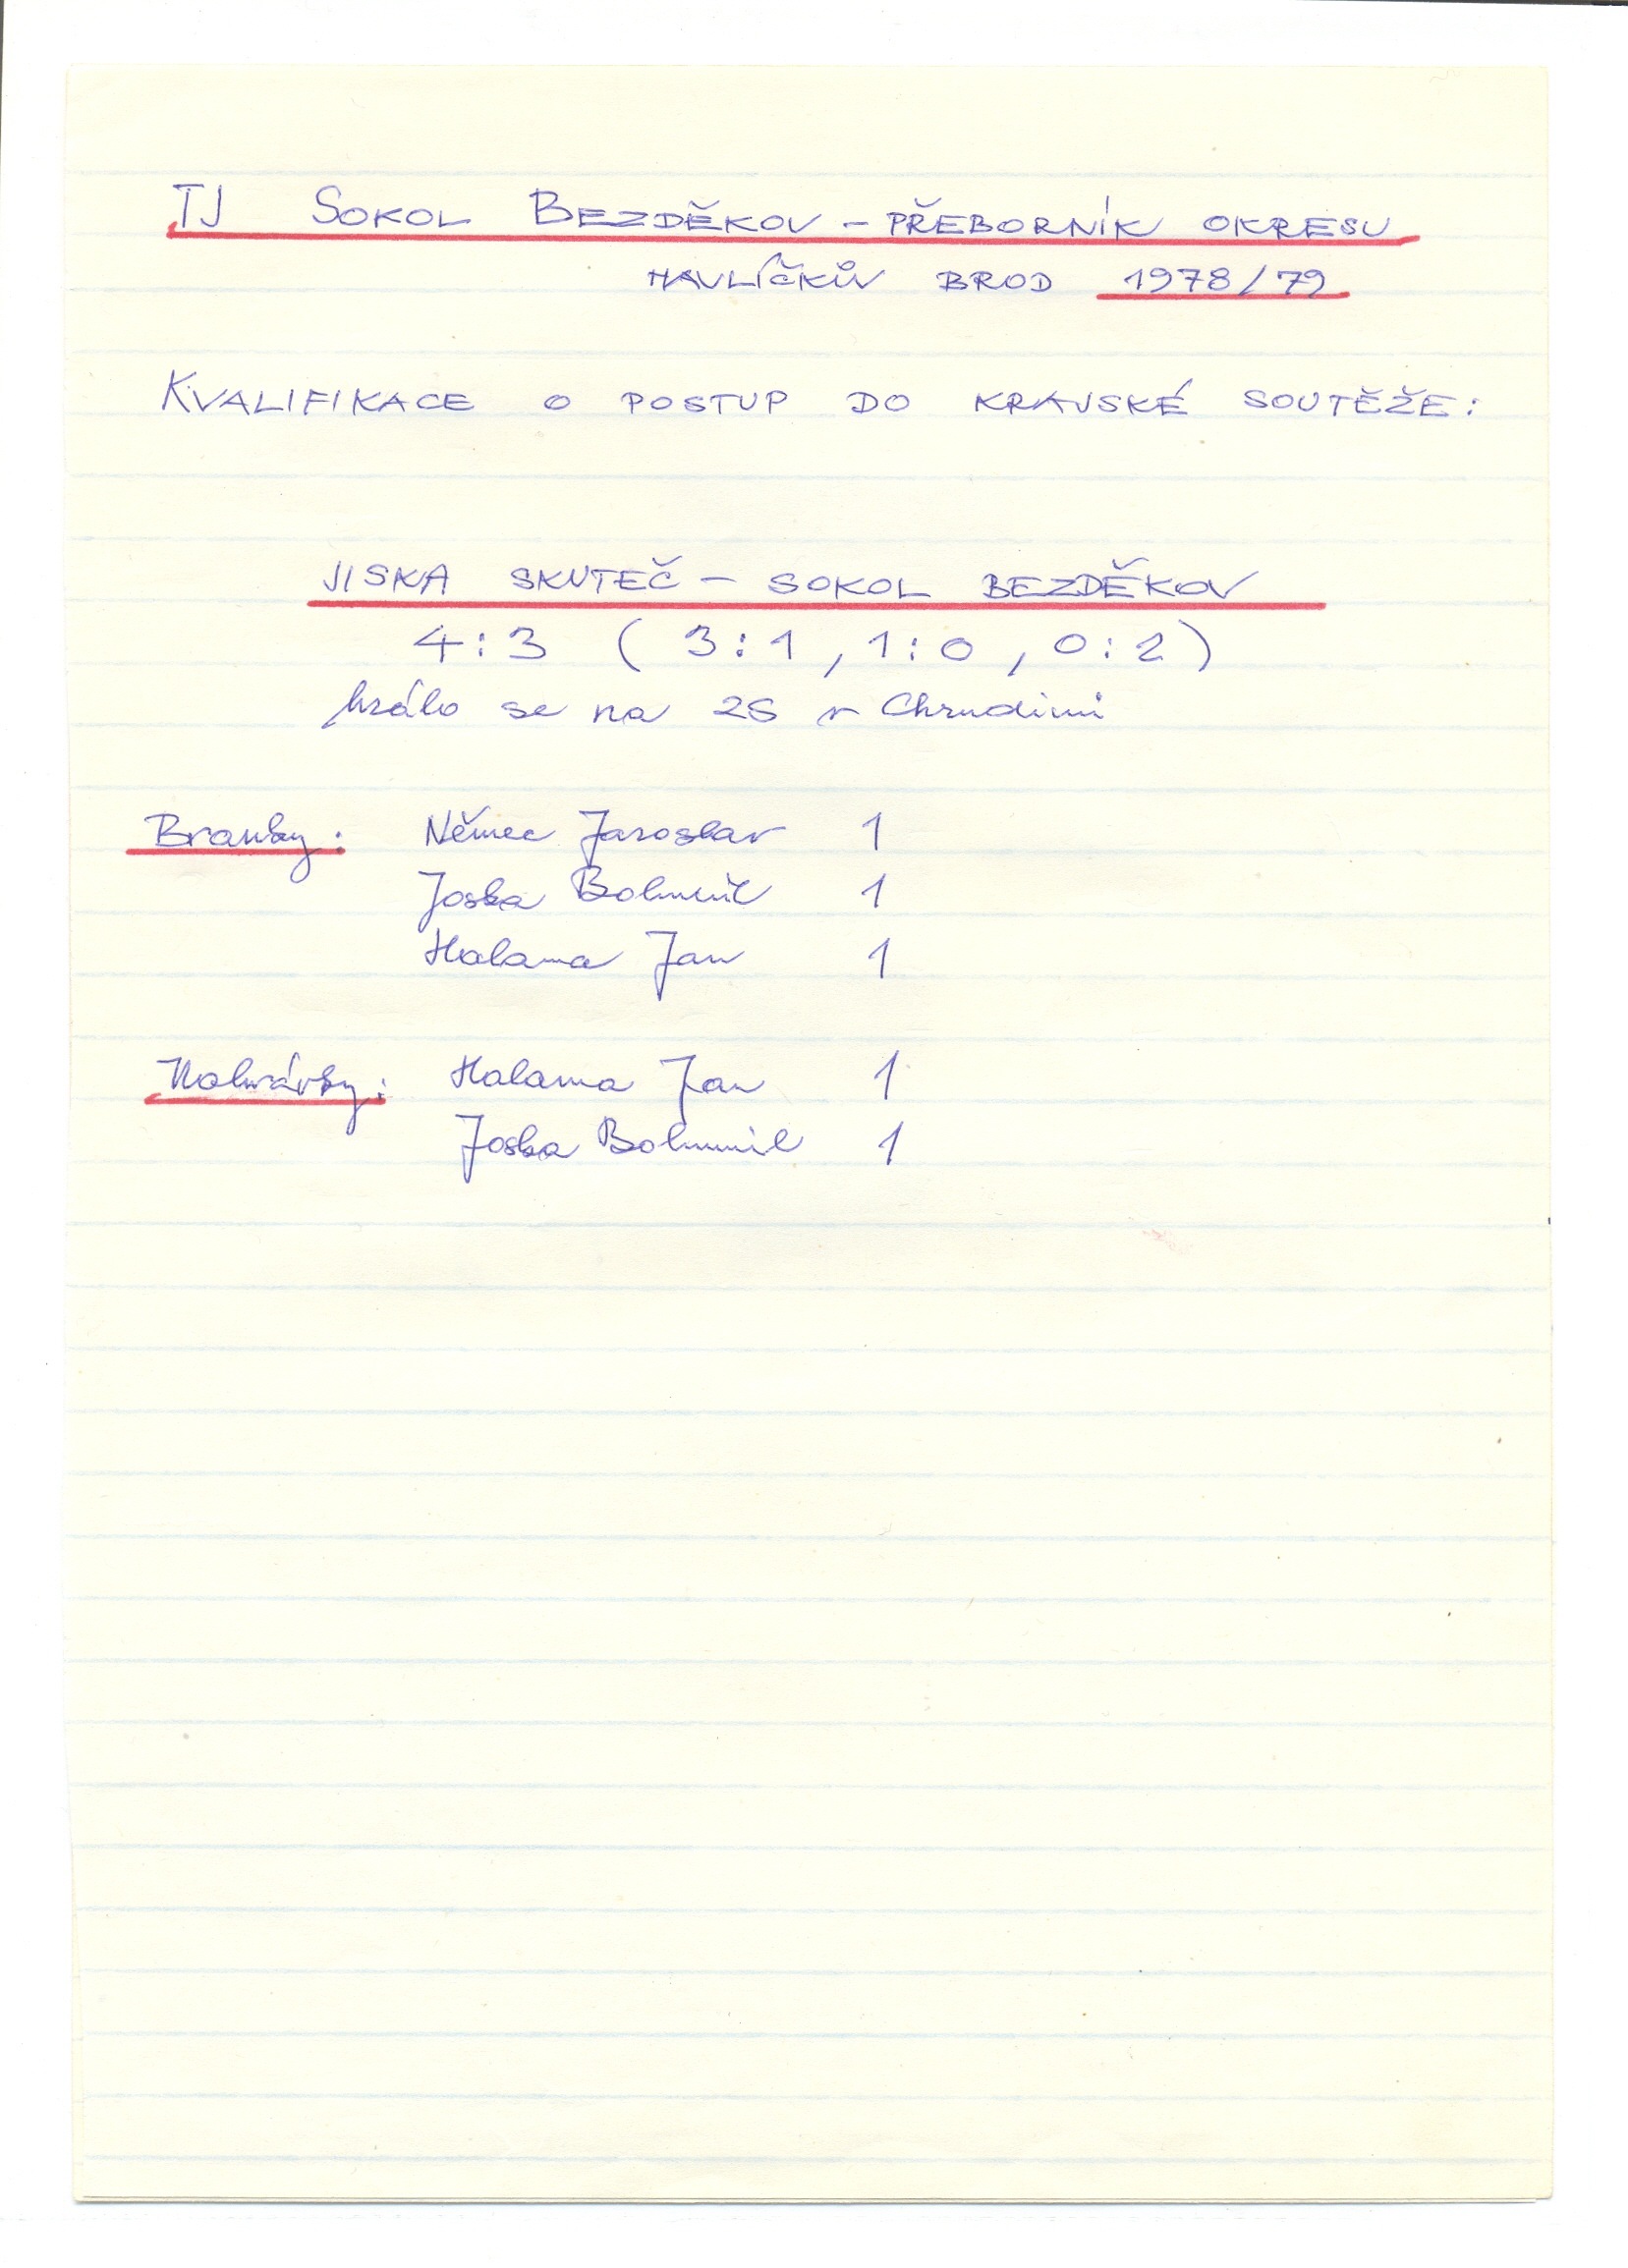 TJ SOKOL BEZDĚKOV – PŘEBORNÍK OKRESU
HAVLÍČKŮV BROD 1978/79
KVALIFIKACE O POSTUP DO KRAJSKÉ SOUTĚŽE:
JISKA SKUTEČ – SOKOL BEZDĚKOV
4:3 (3:1, 1:0, 0:2)
hrálo se na ZS v Chrudimi
Branky: Němec Jaroslav 1
Joska Bohumil 1
Halama Jan 1
Nahrávky: Halama Jan 1
Joska Bohumil 1